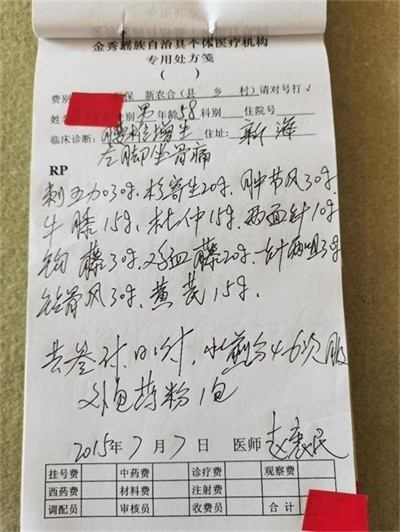 金秀瑶族自治县个体医疗机构
专用处方笺
( )
费别 保 新农合(县 乡 村)请对号打√
姓 别 男 年龄 58 科别 住院号
临床诊断: 腰椎增生 住址: 新
左脚坐骨痛
RP
刺五加30g. 杉寄生20g. 肿节风30g
牛膝15g. 杜仲15g. 两面针10g
钩藤30g. 血藤20g. 一针两咀3g
钻骨风30g. 黄芪15g.
共叁付. 日1付. 水煎分4-6次服
外包药粉1包
2015年7月7日 医师 赵
挂号费 中药费 诊疗费 观察费
西药费 材料费 注射费
调配员 审核员 收费员 合计